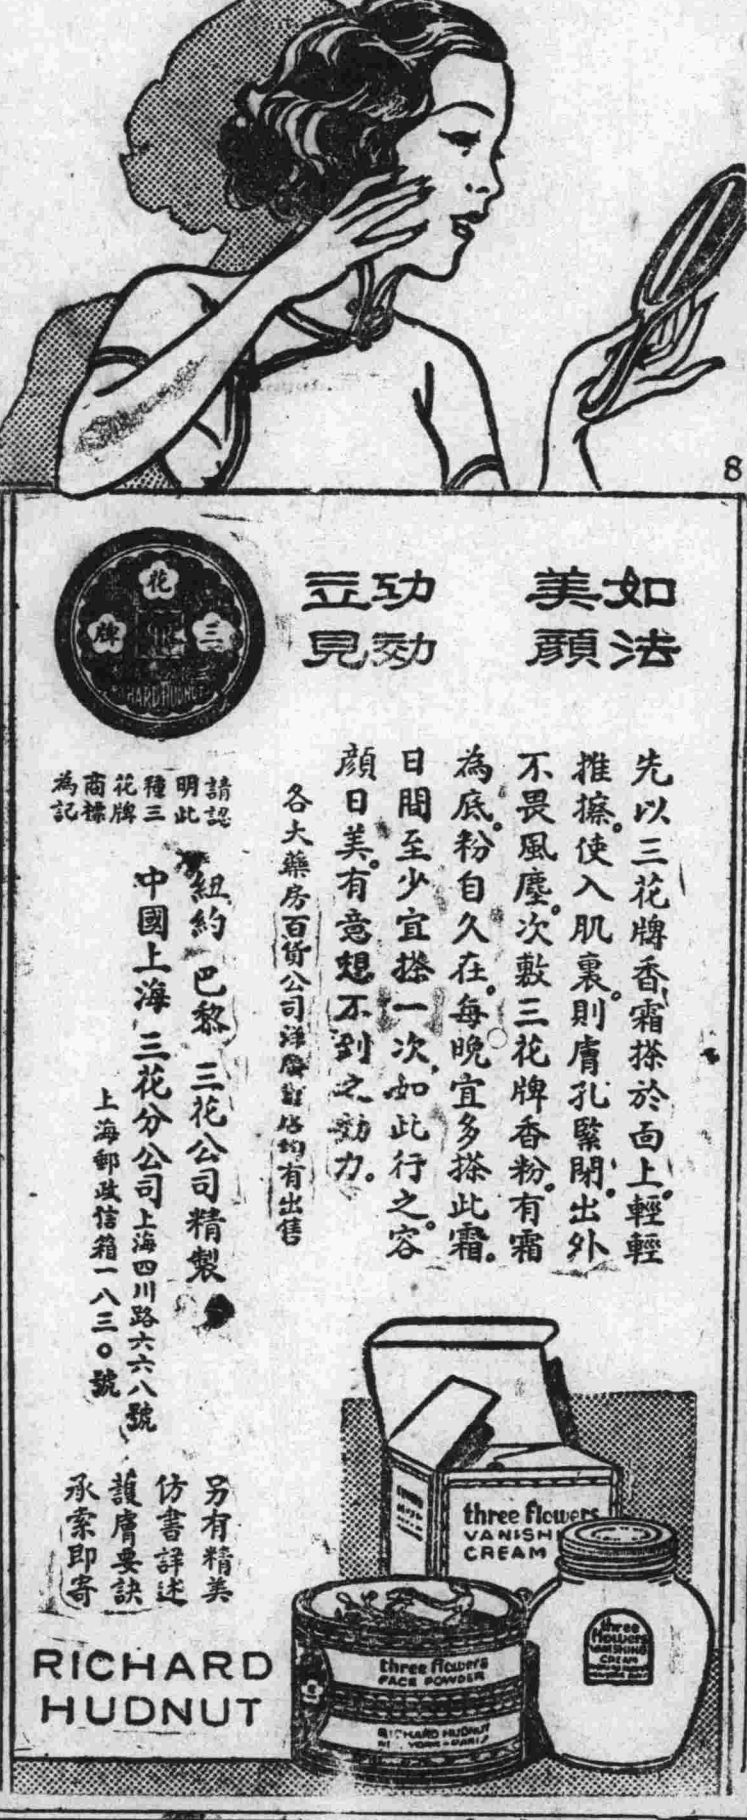 8
如法
美顔
功効
立見
花
三
牌
RICHARD HUDNUT
先以三花牌香霜搽於面上。輕輕
推擦。使入肌裏。則膚孔緊閉。出外
不畏風塵。次敷三花牌香粉。有霜
為底。粉自久在。每晚宜多搽此霜。
日間至少宜搽一次。如此行之。容
顔日美。有意想不到之効力。
各大藥房百貨公司洋均有出售
請認
明此
種三
花牌
商標
為記
紐約 巴黎 三花公司精製
中國上海 三花分公司 上海四川路六六八號
上海郵政信箱一八三〇號
另有精美
仿書詳述
護膚要訣
承索即寄
three flowers
VANISHI
CREAM
three flowers
VANISHING
CREAM
three flowers
FACE POWDER
RICHARD HUDNUT
NEW YORK - PARIS
RICHARD
HUDNUT